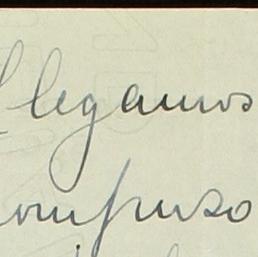 llegamos
compuso